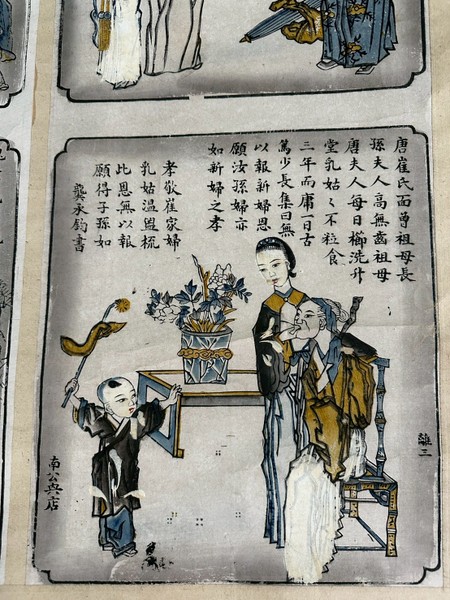 唐崔氏面曾祖母長
孫夫人高無齒祖母
唐夫人每日櫛洗升
堂乳姑々不粒食
三年而庸一日古
篤少長集曰無
以報新婦恩
願汝孫婦亦
如新婦之孝
孝敬崔家婦
乳姑溫盥梳
此恩無以報
願得子孫如
龔承鈞書
南公興店
三